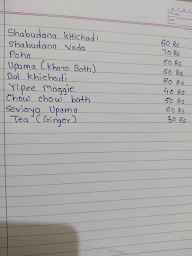 Shabudana Khichadi 60 Rs
Shabudana Vada 70 Rs
Poha 50 Rs
Upama (Khara Bath) 60 Rs
Dal Khichadi 60 Rs
Yipee Maggie 40 Rs
Chow chow bath 50 Rs
Seviaya Upama 60 Rs
Tea (Ginger) 30 Rs